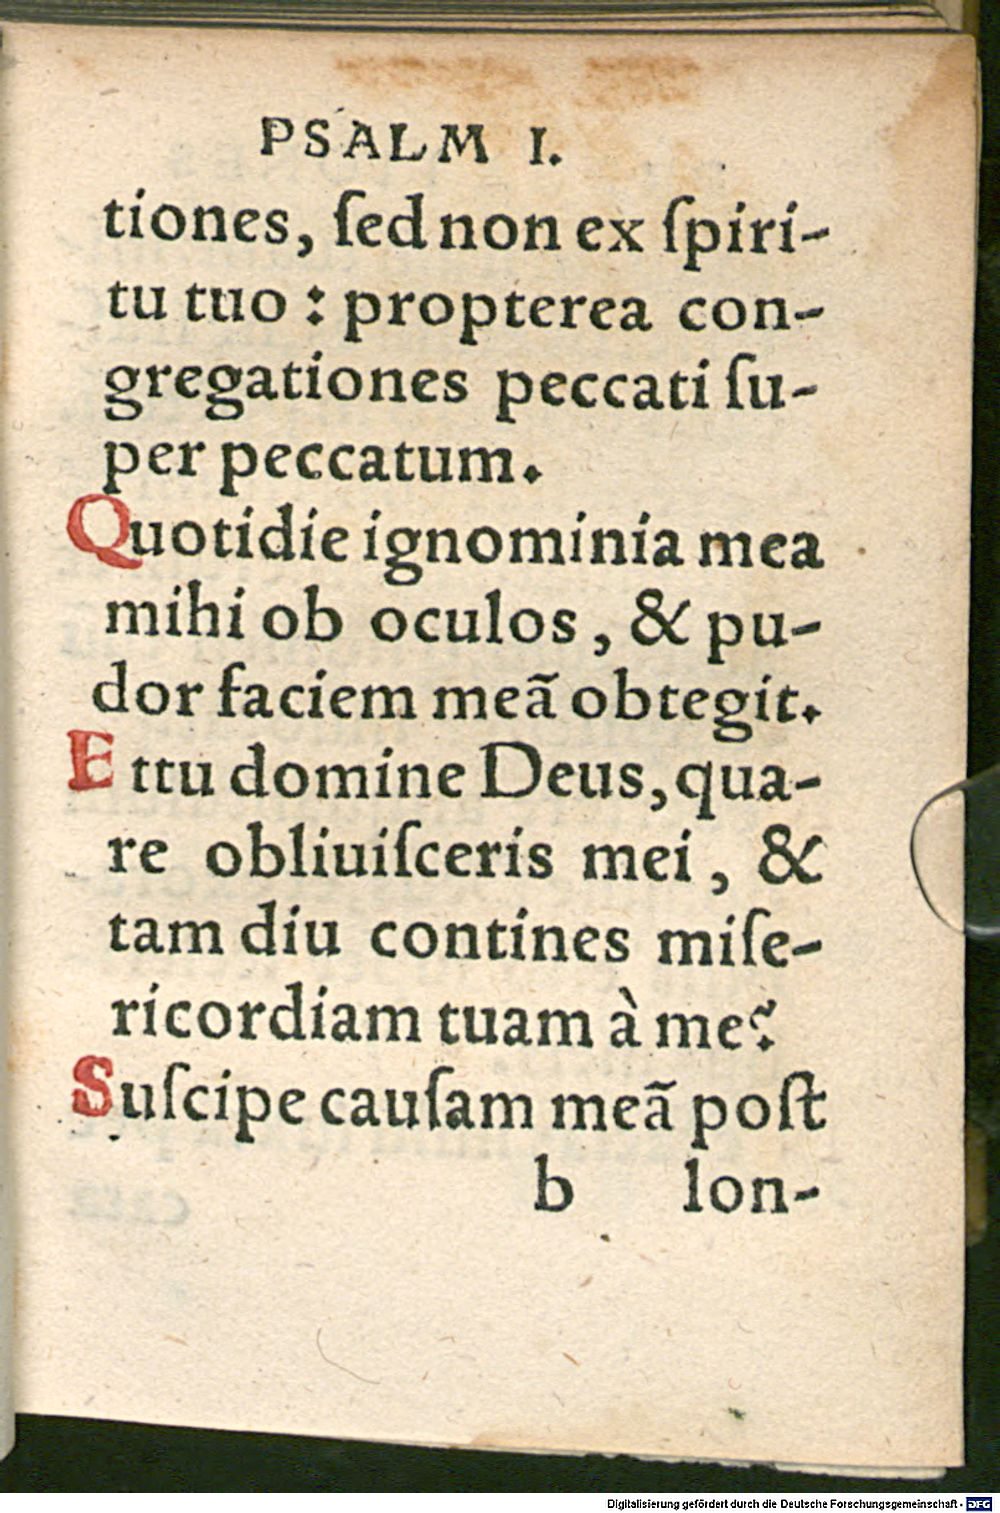 PSALM I.
tiones, ſed non ex ſpiri-
tu tuo : propterea con-
gregationes peccati ſu-
per peccatum.
Quotidie ignominia mea
mihi ob oculos, & pu-
dor faciem meã obtegit.
Et tu domine Deus, qua-
re obliuiſceris mei, &
tam diu contines miſe-
ricordiam tuam à me?
Suſcipe cauſam meã poſt
b lon-
Digitalisierung gefördert durch die Deutsche Forschungsgemeinschaft - DFG